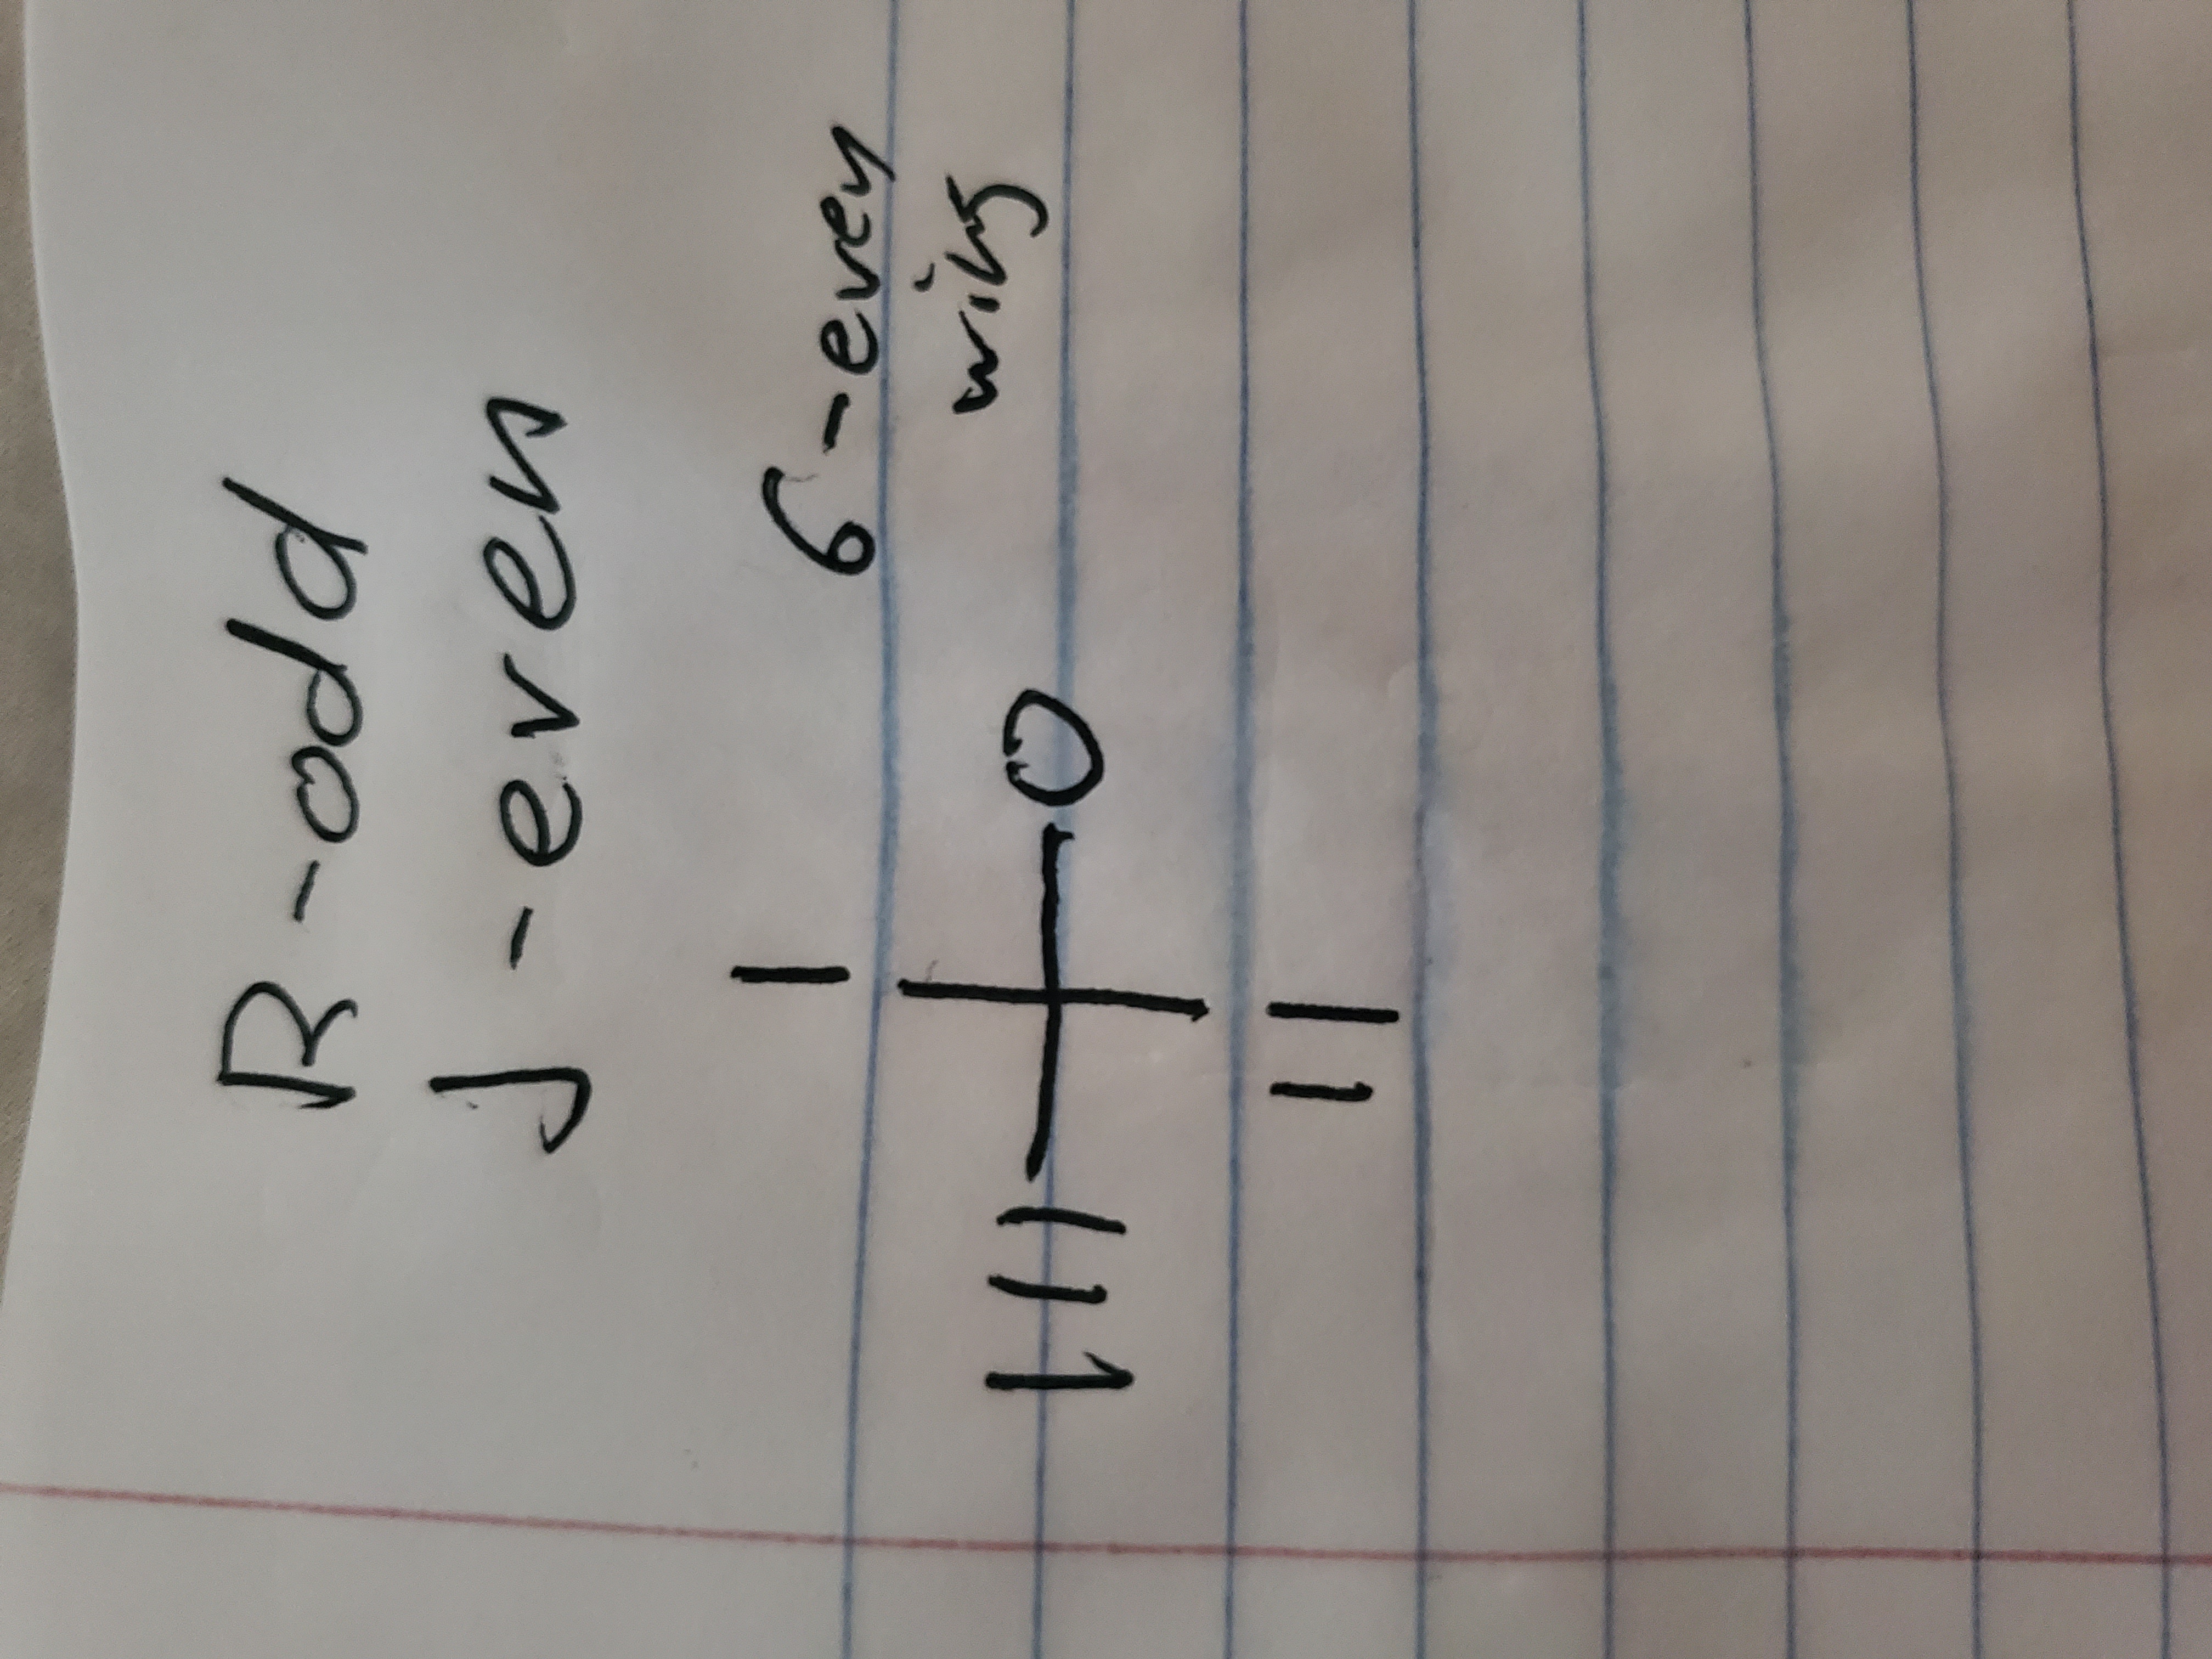 R-odd
J-even
I
6-even
wins
III O
II